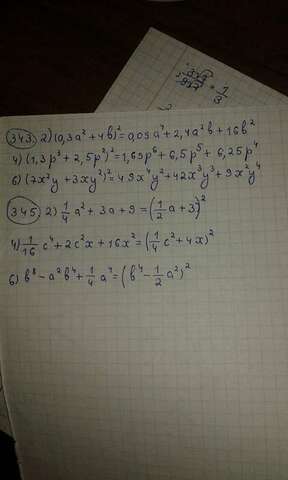 3√3
9√3 = 1/3
343. 2) (0,3a² + 4b)² = 0,09a⁴ + 2,4a²b + 16b²
4) (1,3p³ + 2,5p²)² = 1,69p⁶ + 6,5p⁵ + 6,25p⁴
6) (7x²y + 3xy²)² = 49x⁴y² + 42x³y³ + 9x²y⁴
345. 2) 1/4 a² + 3a + 9 = (1/2 a + 3)²
4) 1/16 c⁴ + 2c²x + 16x² = (1/4 c² + 4x)²
6) b⁸ - a²b⁴ + 1/4 a⁴ = (b⁴ - 1/2 a²)²